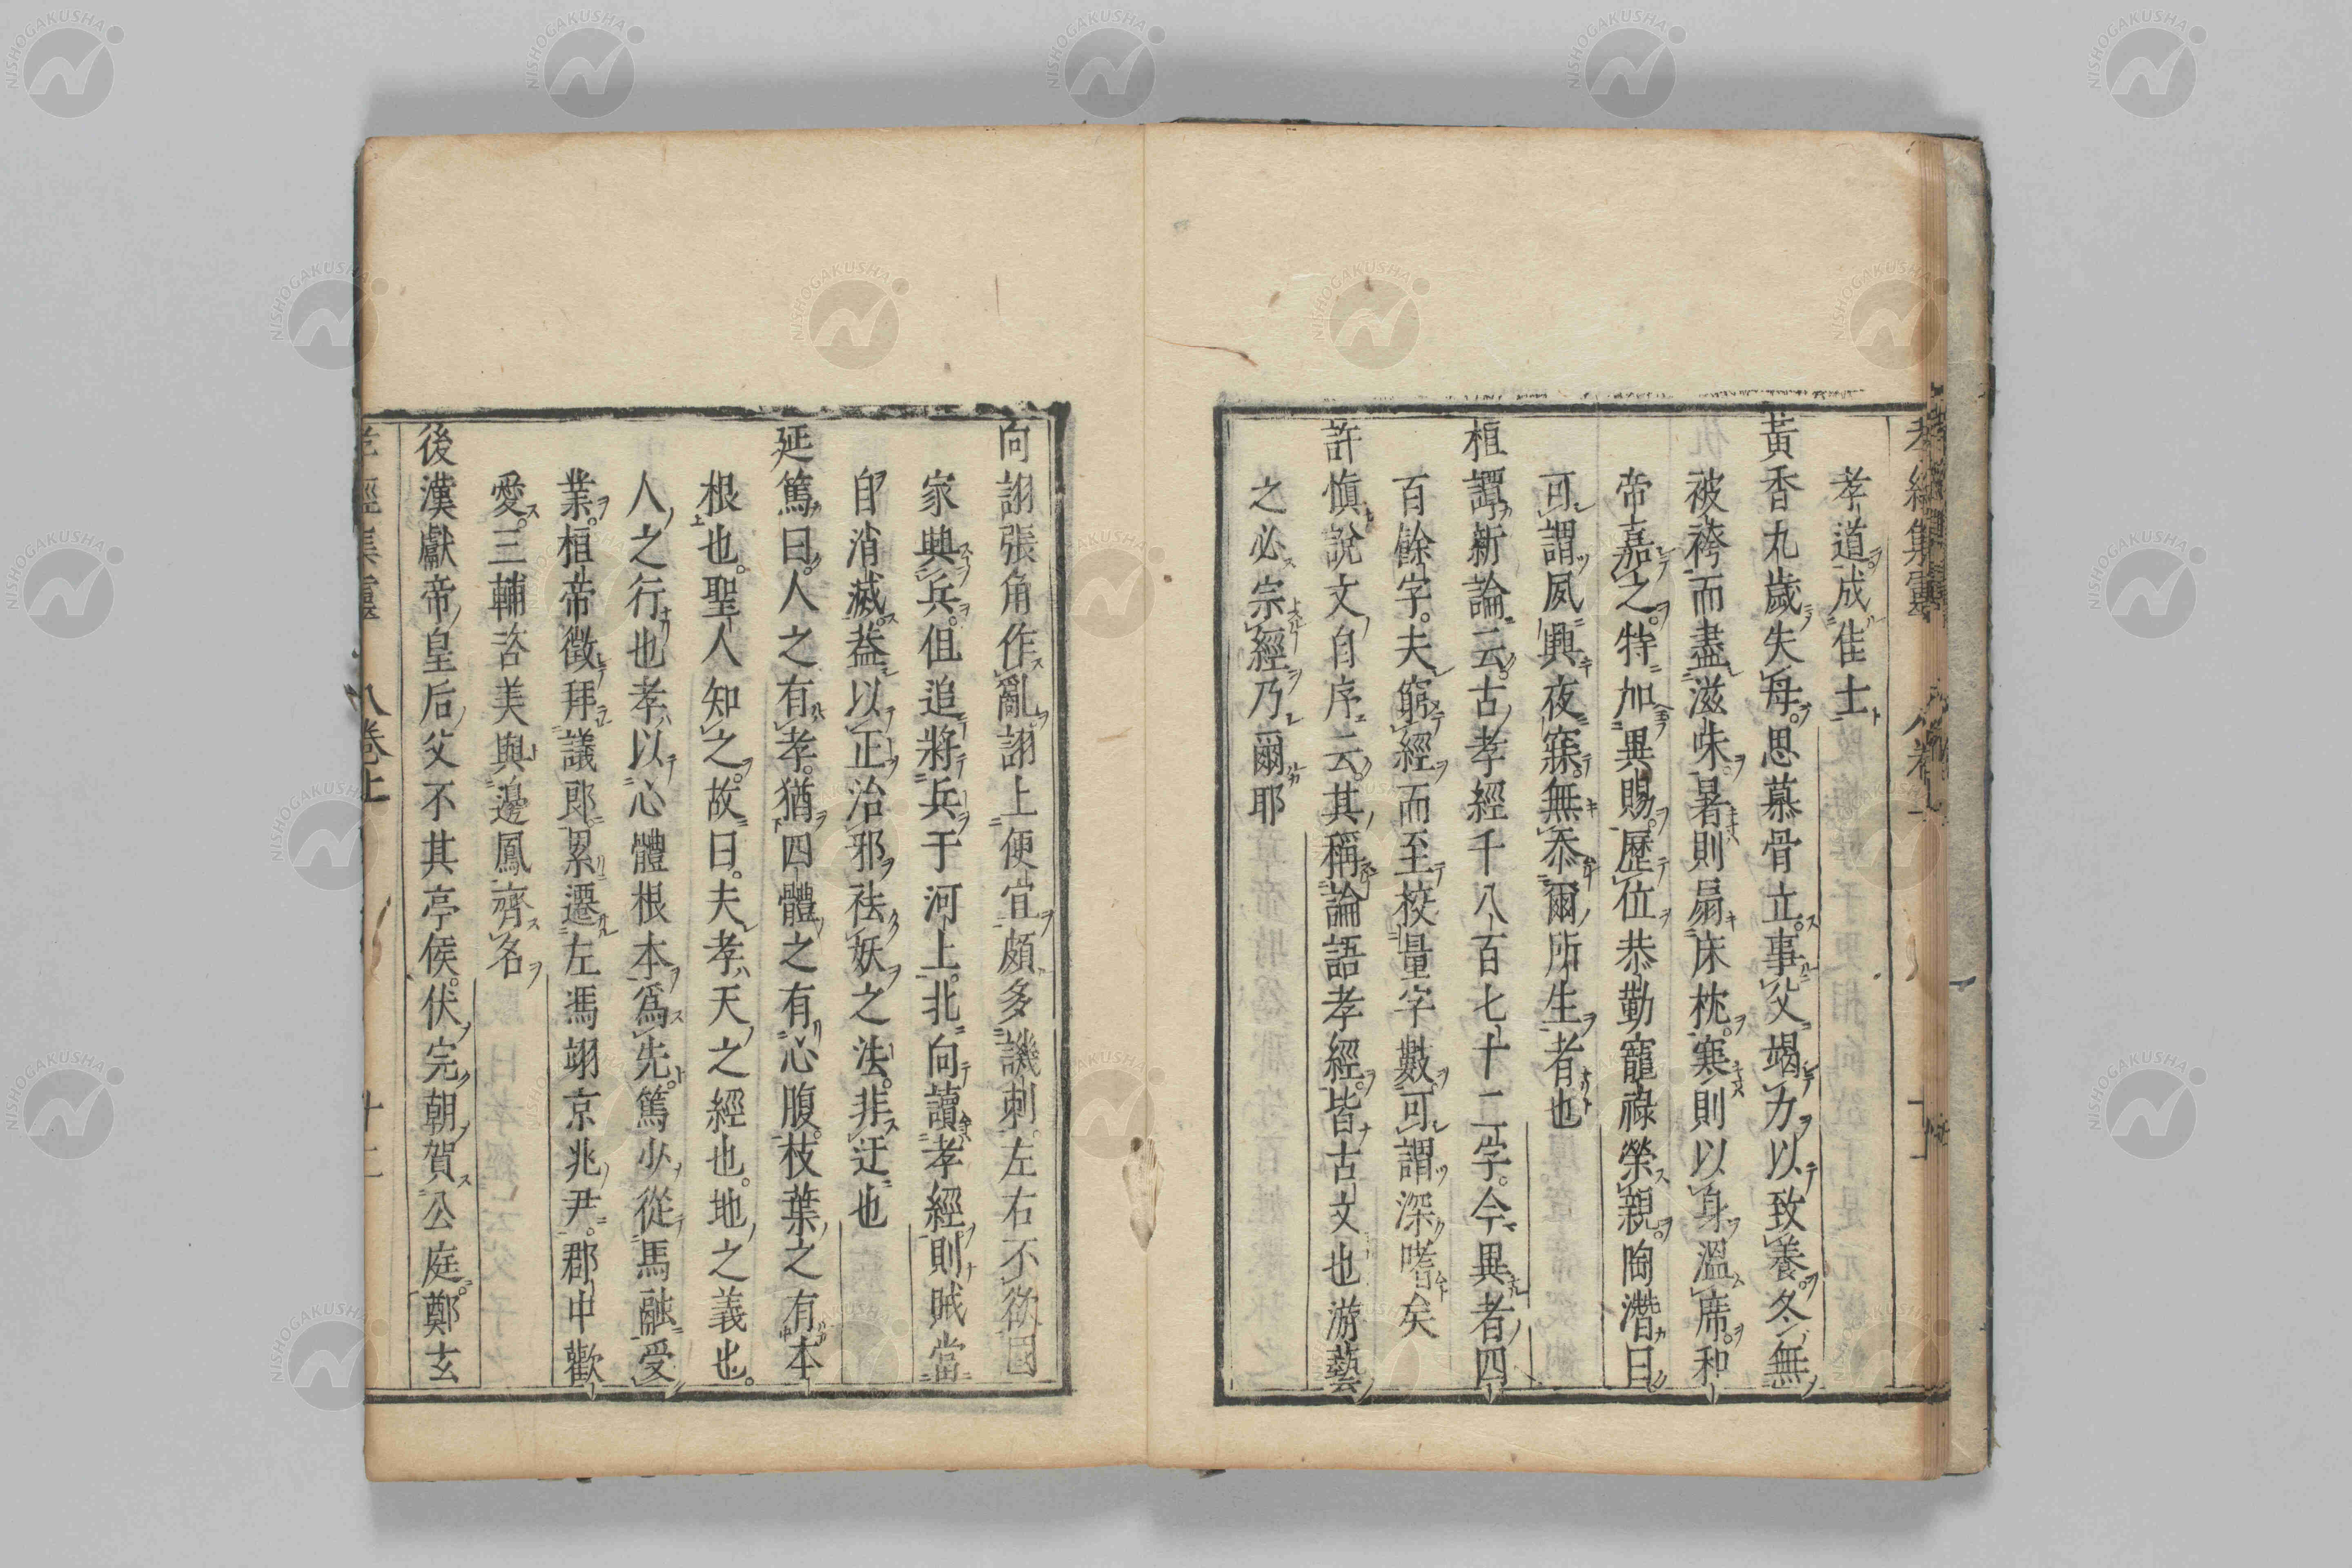 孝道成佳士
黃香九歲失母思慕骨立事父竭力以致養冬無
被袴而盡滋味暑則扇床枕寒則以身溫席和
帝嘉之特加異賜歷位恭勤寵祿榮親陶潛曰
可謂夙興夜寐無忝爾所生者也
桓譚新論云古孝經千八百七十二字今異者四
百餘字夫窮經而至校量字數可謂深嗜矣
許愼說文自序云其稱論語孝經皆古文也游藝
之必宗經乃爾耶
向詡張角作亂詡上便宜頗多譏刺左右不欲國
家興兵但追將兵于河上北向讀孝經則賊當
自消滅葢以正治邪祛妖之法非迂也
延篤曰人之有孝猶四體之有心腹枝葉之有本
根也聖人知之故曰夫孝天之經也地之義也
人之行也孝以心體根本爲先篤少從馬融受
業桓帝徵拜議郎累遷左馮翊京兆尹郡中歡
愛三輔咨美與邊鳳齊名
後漢獻帝皇后父不其亭侯伏完朝賀公庭鄭玄
八卷上
十二
NISHOGAKUSHA